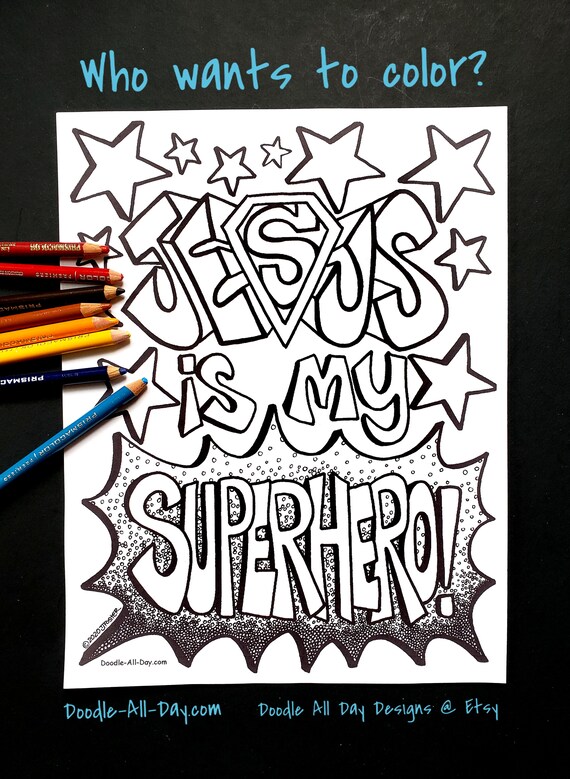 Who wants to color?
JESUS
is my
SUPERHERO!
Doodle-All-Day.com
PRISMACOLOR
Doodle-All-Day.com Doodle All Day Designs @ Etsy